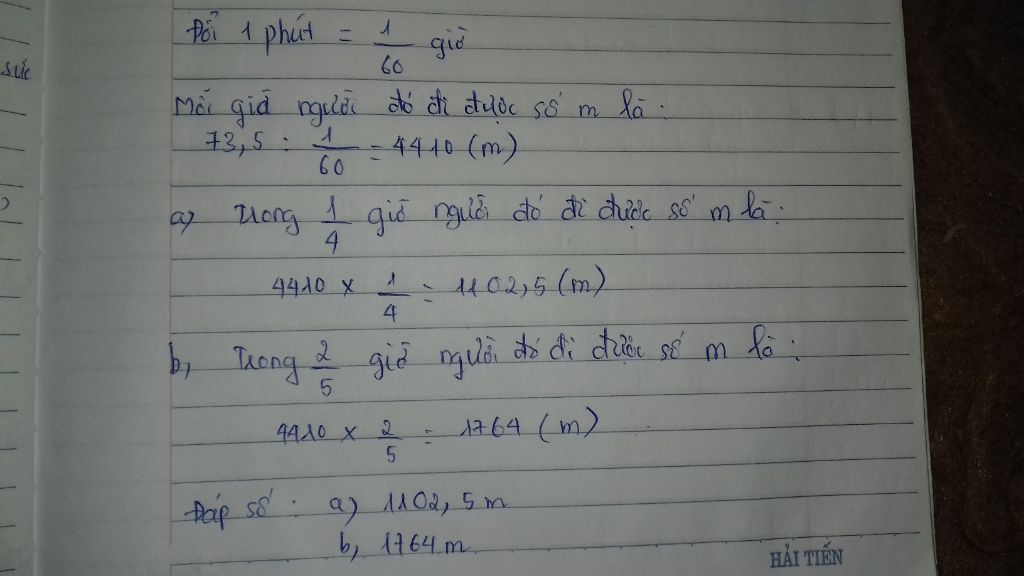 Đổi 1 phút = 1/60 giờ
sức
Mỗi giờ người đó đi được số m là:
73,5 : 1/60 = 4410 (m)
a) Trong 1/4 giờ người đó đi được số m là:
4410 x 1/4 = 1102,5 (m)
b, Trong 2/5 giờ người đó đi được số m là:
4410 x 2/5 = 1764 (m)
Đáp số : a) 1102,5 m
b, 1764 m
HẢI TIẾN